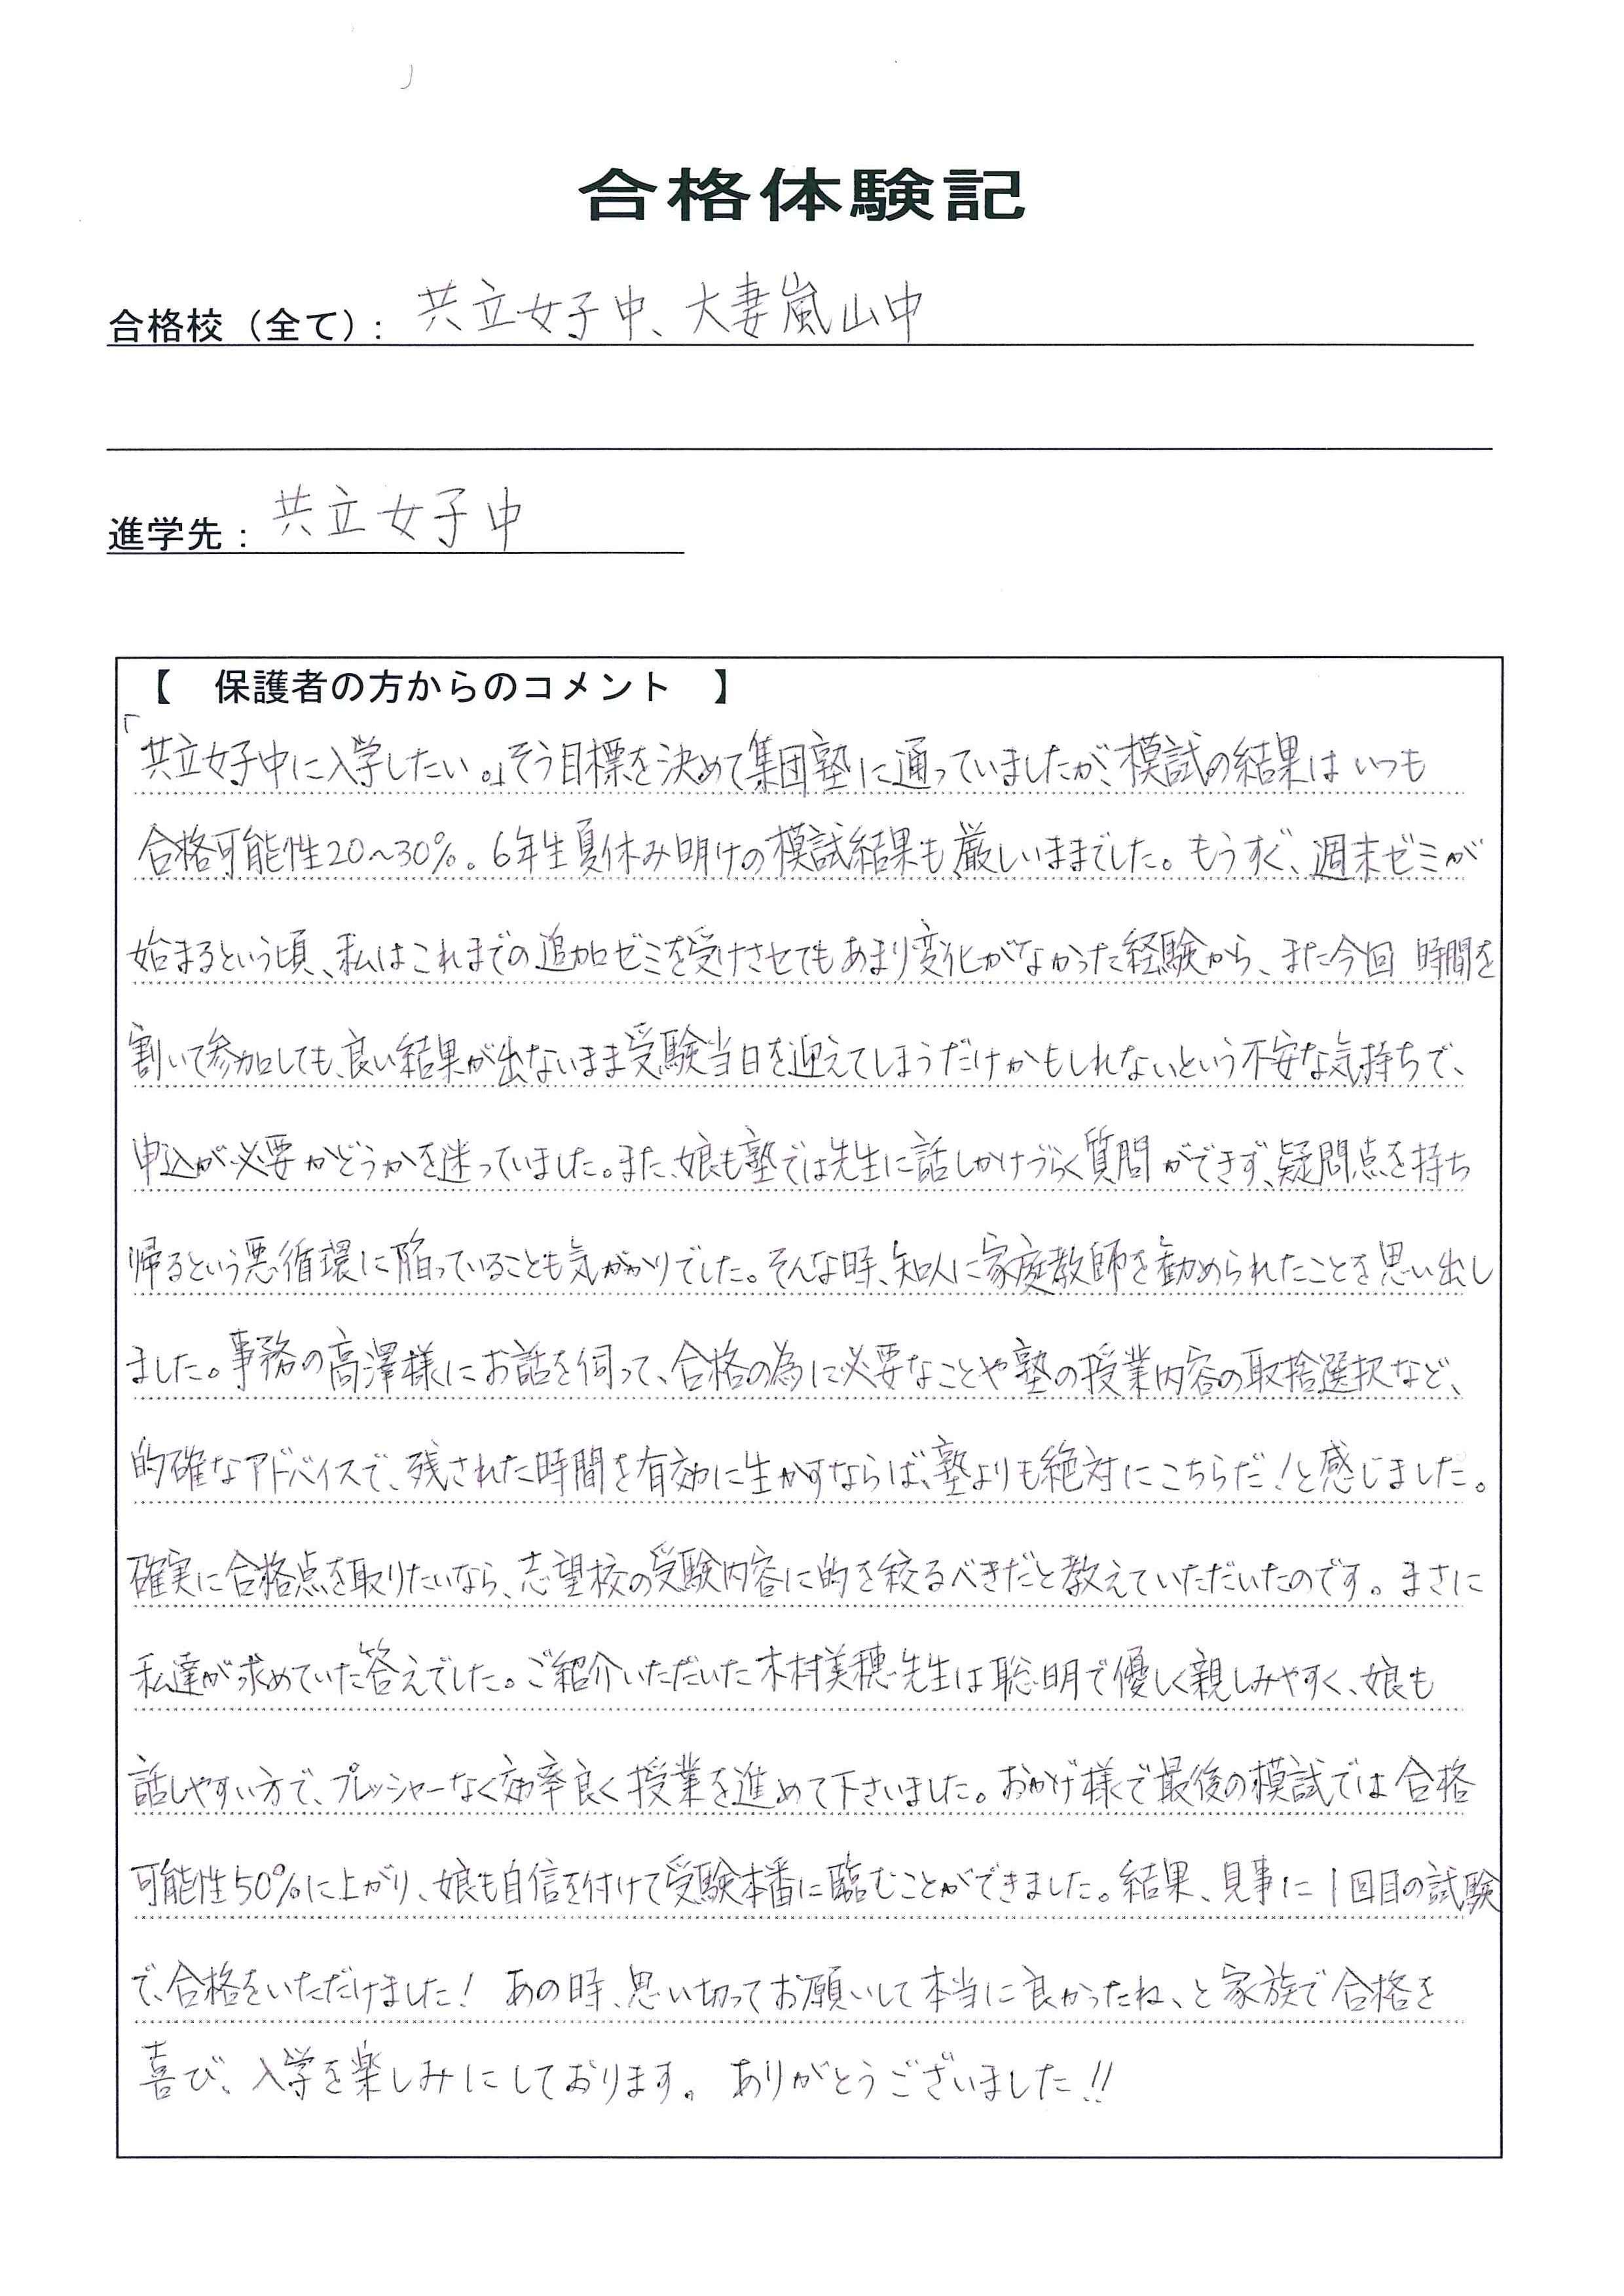 合格体験記
合格校（全て）： 共立女子中、大妻嵐山中
進学先： 共立女子中
【　保護者の方からのコメント　】
「共立女子中に入学したい。」そう目標を決めて集団塾に通っていましたが、模試の結果はいつも
合格可能性20～30%。6年生夏休み明けの模試結果も厳しいままでした。もうすぐ、週末ゼミが
始まるという頃、私はこれまでの追加ゼミを受けさせてもあまり変化がなかった経験から、また今回 時間を
割いて参加しても、良い結果が出ないまま受験当日を迎えてしまうだけかもしれないという不安な気持ちで、
申込が必要かどうかを迷っていました。また、娘も塾では先生に話しかけづらく質問ができず、疑問点を持ち
帰るという悪循環に陥っていることも気がかりでした。そんな時、知人に家庭教師を勧められたことを思い出し
ました。事務の高澤様にお話を伺って、合格の為に必要なことや塾の授業内容の取捨選択など、
的確なアドバイスで、残された時間を有効に生かすならば、塾よりも絶対にこちらだ！と感じました。
確実に合格点を取りたいなら、志望校の受験内容に的を絞るべきだと教えていただいたのです。まさに
私達が求めていた答えでした。ご紹介いただいた木村美穂先生は聡明で優しく親しみやすく、娘も
話しやすい方で、プレッシャーなく効率良く授業を進めて下さいました。おかげ様で最後の模試では合格
可能性50%に上がり、娘も自信を付けて受験本番に臨むことができました。結果、見事に1回目の試験
で、合格をいただけました！ あの時、思い切ってお願いして本当に良かったね、と家族で合格を
喜び、入学を楽しみにしております。ありがとうございました!!